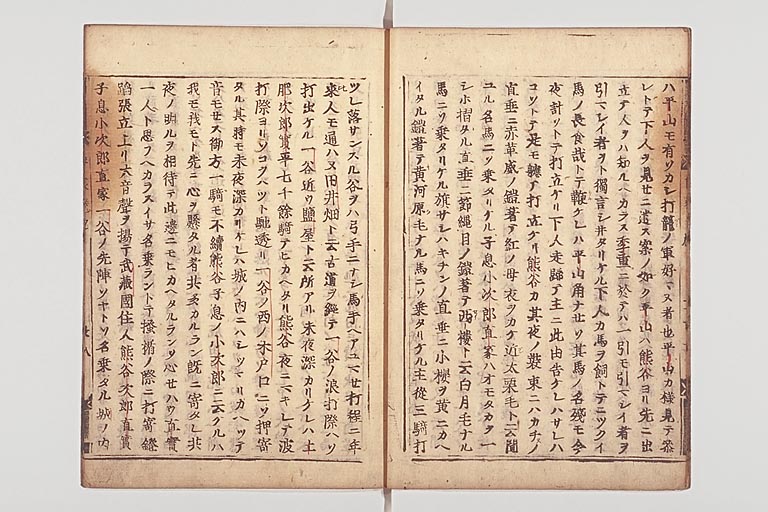 ハ平山モ有ツカシ打籠ノ軍好マヌ者也平山カ様見テ参
レトテ下人ヲ見セニ遣ス案ノ如ク平山ハ熊谷ヨリ先ニ出
立テ人ヲハ知ルヘカラス季重ニ於テハ一引モ引マシイ者ヲ
引マシイ者ヲト獨言シ井タリケル下人カ馬ヲ飼トテニツクイ
馬ノ長食哉トテ鞭ケレハ平山角ナセソ其馬ノ名残モ今
夜計ソトテ打立ケリ下人走歸テ主ニ此由告ケレハサレハ
コソトテ是モ軈テ打立ケリ熊谷カ其夜ノ裝束ニハカチノ
直垂ニ赤革威ノ鎧著テ紅ノ母衣ヲカケ近太栗毛ト云聞
ユル名馬ニソ乗タリケル子息小次郎直家ハオモタカヲ一
シホ摺タル直垂ニ節縄目ノ鎧著テ西楼ト云白月毛ナル
馬ニソ乗タリケル旗サシハキチンノ直垂ニ小桜ヲ黄ニカヘ
イタル鎧著テ黄河原毛ナル馬ニソ乗タリケル主従三騎打
ツレ落サンスル谷ヲハ弓手ニナシ馬手ヘアユマセ打程ニ年
来人モ通ハヌ田井畑ト云古道ヲ經テ一谷ノ浪打際ヘソ
打出ケル一谷近ク鹽屋ト云所アリ未夜深カリケレハ土
肥次郎實平七千餘騎テヒカヘタリ熊谷夜ニマキレテ波
打際ヨリソコヲハツト馳透リ一谷ノ西ノ木戸口ニソ押寄
タル其時モ未夜深カリケレハ城ノ内ニハシツマリカヘツテ
音モセス御方一騎モ不續熊谷子息ノ小次郎ニ云ケルハ
我モ我モト先ニ心ヲ懸タル者共多カルラン既ニ寄タレ共
夜ノ明ルヲ相待テ此邊ニモヒカヘタルランソ心セハウ直實
一人ト思フヘカラスイサ名乗ラントテ掻楯ノ際ニ打寄鐙
蹈張立上リ大音聲ヲ揚テ武藏國住人熊谷次郎直實
子息小次郎直家一谷ノ先陣ソヤトソ名乗タル城ノ内